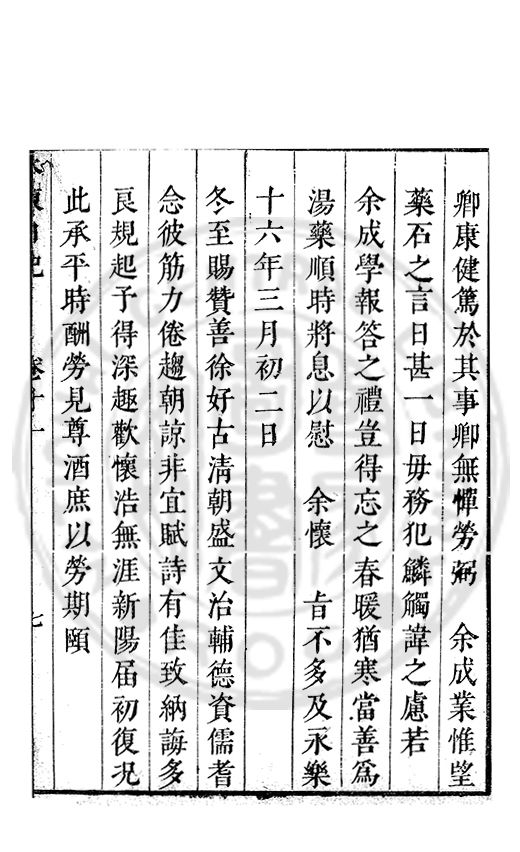 卿康健篤於其事卿無憚勞弼　余成業惟望
藥石之言日甚一日毋務犯鱗觸諱之慮若
余成學報答之禮豈得忘之春暖猶寒當善爲
湯藥順時將息以慰　余懷　旨不多及永樂
十六年三月初二日
冬至賜贊善徐好古清朝盛文治輔德資儒耆
念彼筋力倦趨朝諒非宜賦詩有佳致納誨多
良規起予得深趣歡懷浩無涯新陽届初復况
此承平時酬勞見尊酒庶以勞期頤
卷十
七